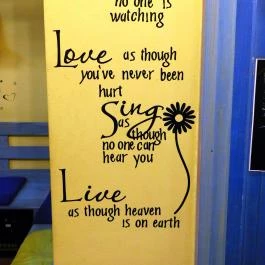 no one is
watching
Love as though
you've never been
hurt
Sing
as
though
no one can
hear you
Live
as though heaven
is on earth